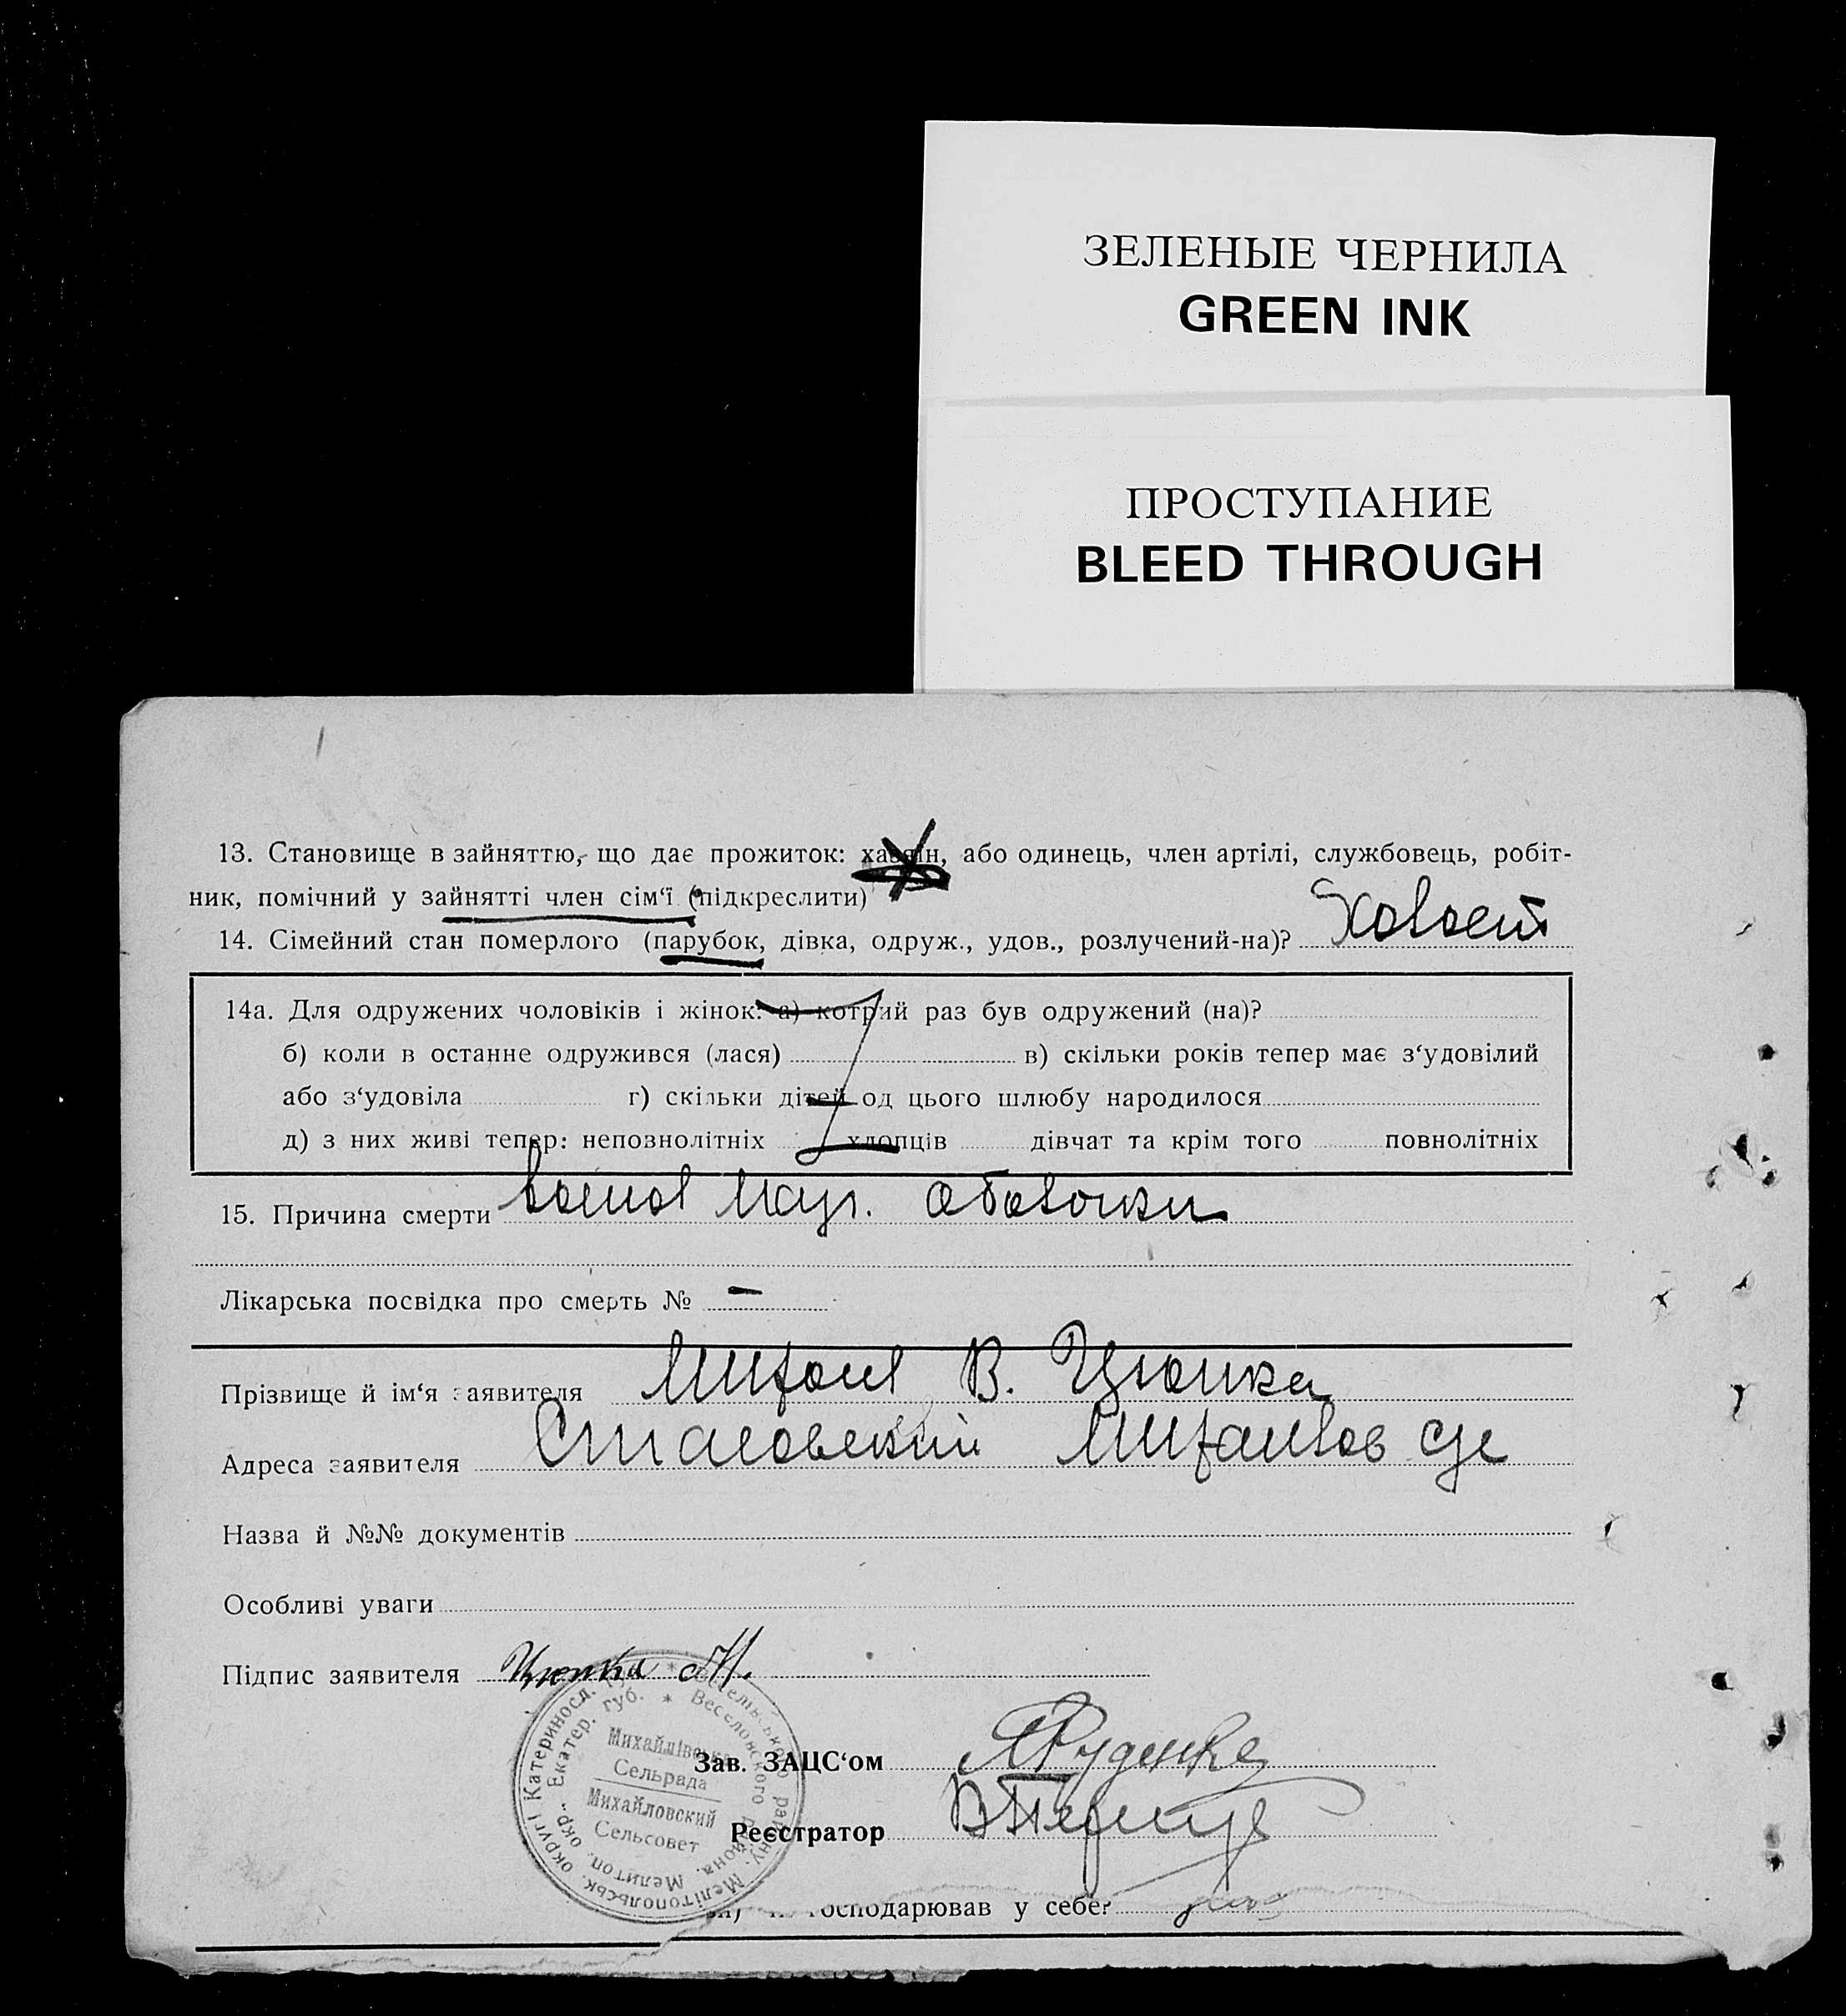 ЗЕЛЕНЫЕ ЧЕРНИЛА
GREEN INK
ПРОСТУПАНИЕ
BLEED THROUGH
13. Становище в зайняттю, що дає прожиток: хазяїн, або одинець, член артілі, службовець, робіт-
ник, помічний у зайнятті член сім‘ї (підкреслити)
14. Сімейний стан померлого (парубок, дівка, одруж., удов., розлучений-на)?
14а. Для одружених чоловіків і жінок: а) котрий раз був одружений (на)?
б) коли в останне одружився (лася) в) скільки років тепер має з‘удовілий
або з‘удовіла г) скільки дітей од цього шлюбу народилося
д) з них живі тепер: неповнолітніх хлопців дівчат та крім того повнолітніх
15. Причина смерти
Лікарська посвідка про смерть № –
Прізвище й ім‘я заявителя В. Цюпка
Адреса заявителя
Назва й №№ документів
Особливі уваги
Підпис заявителя Цюпка М.
Михайлівська
Сельрада
Михайловский
Сельсовет
Зав. ЗАЦС‘ом Руденко
Реєстратор
господарював у себе?